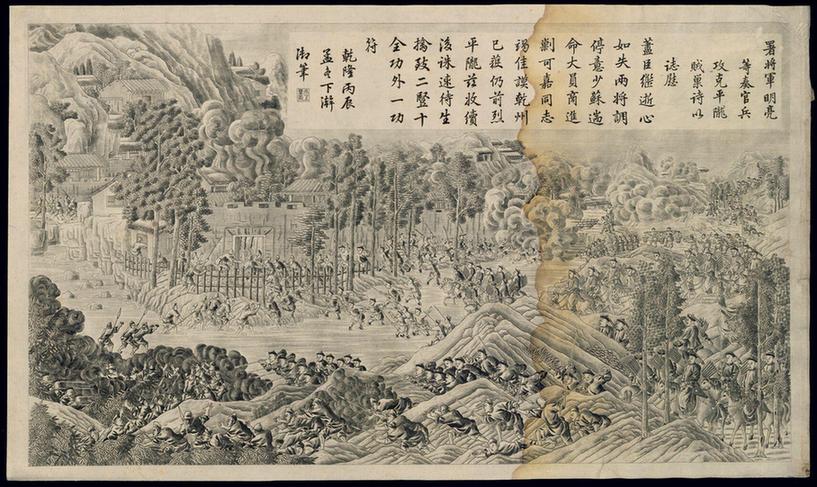 署將軍明亮
等奏官兵
攻克平隴
賊巢詩以
誌慰
藎臣繼逝心
如失兩將調
停意少蘇遄
命大員商進
剿可嘉同志
佳謨乾州
已復仍前烈
平隴茲收續
後誅速待生
擒致二豎十
全功外一功
符
乾隆丙辰
孟冬下澣
御筆